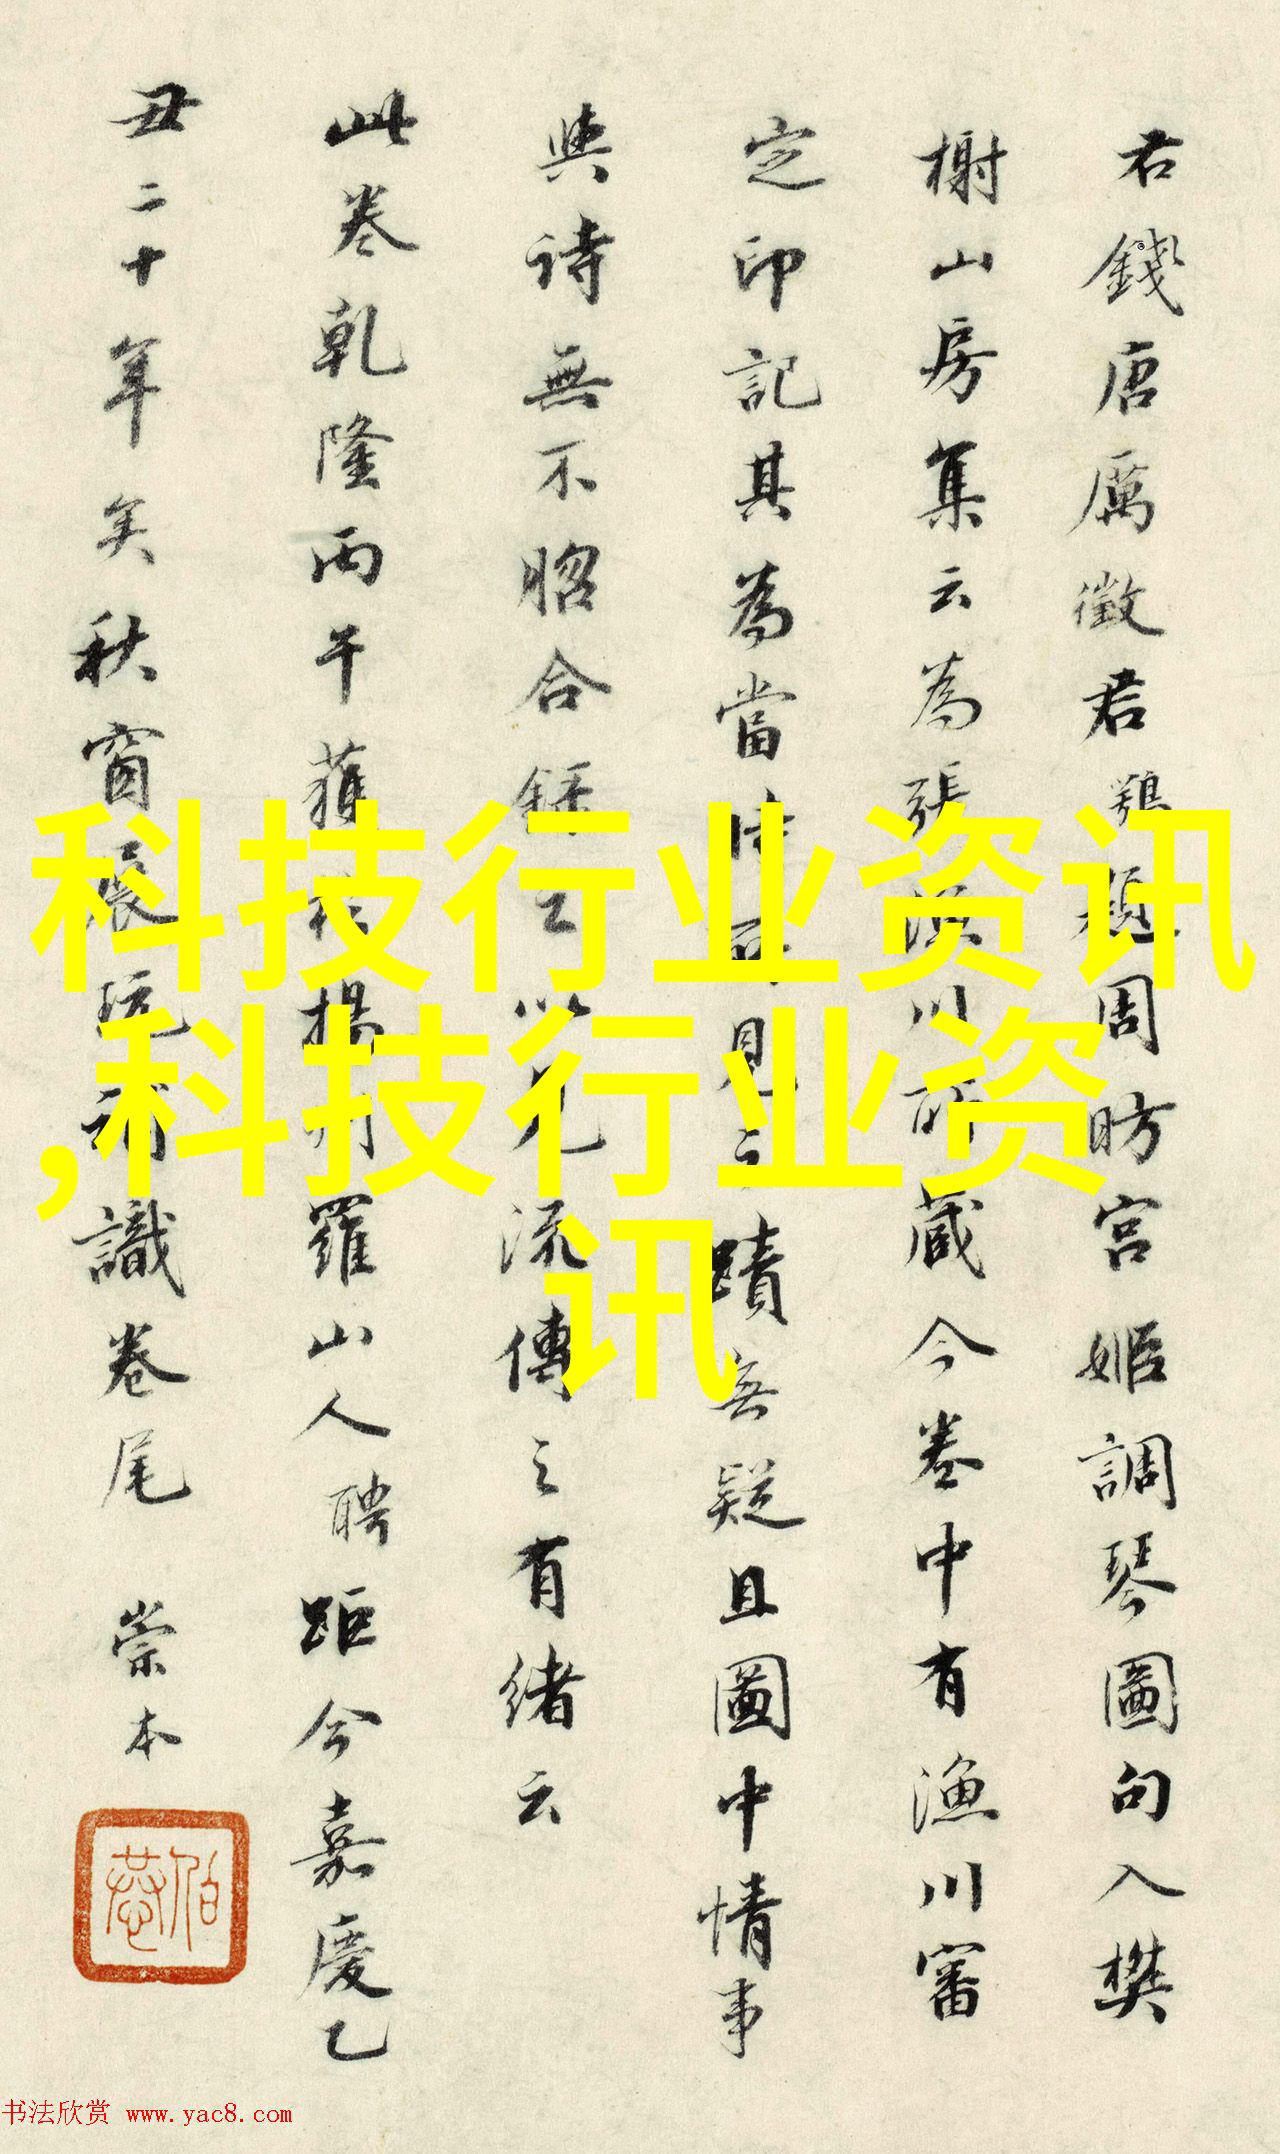 君錢唐厲徵君鶚題周昉宮姬調琴圖句入樊
榭山房集云為張漁川所藏今卷中有漁川審
定印記其為當時所見之蹟無疑且圖中情事
與詩無不昭合 以見流傳之有緒云
此卷乾隆丙午獲於揚州羅山人聘距今嘉慶乙
丑二十年矣秋窗展玩 識卷尾 崇本
科技行业资讯
,科技行业资
讯
书法欣赏 www.yac8.com